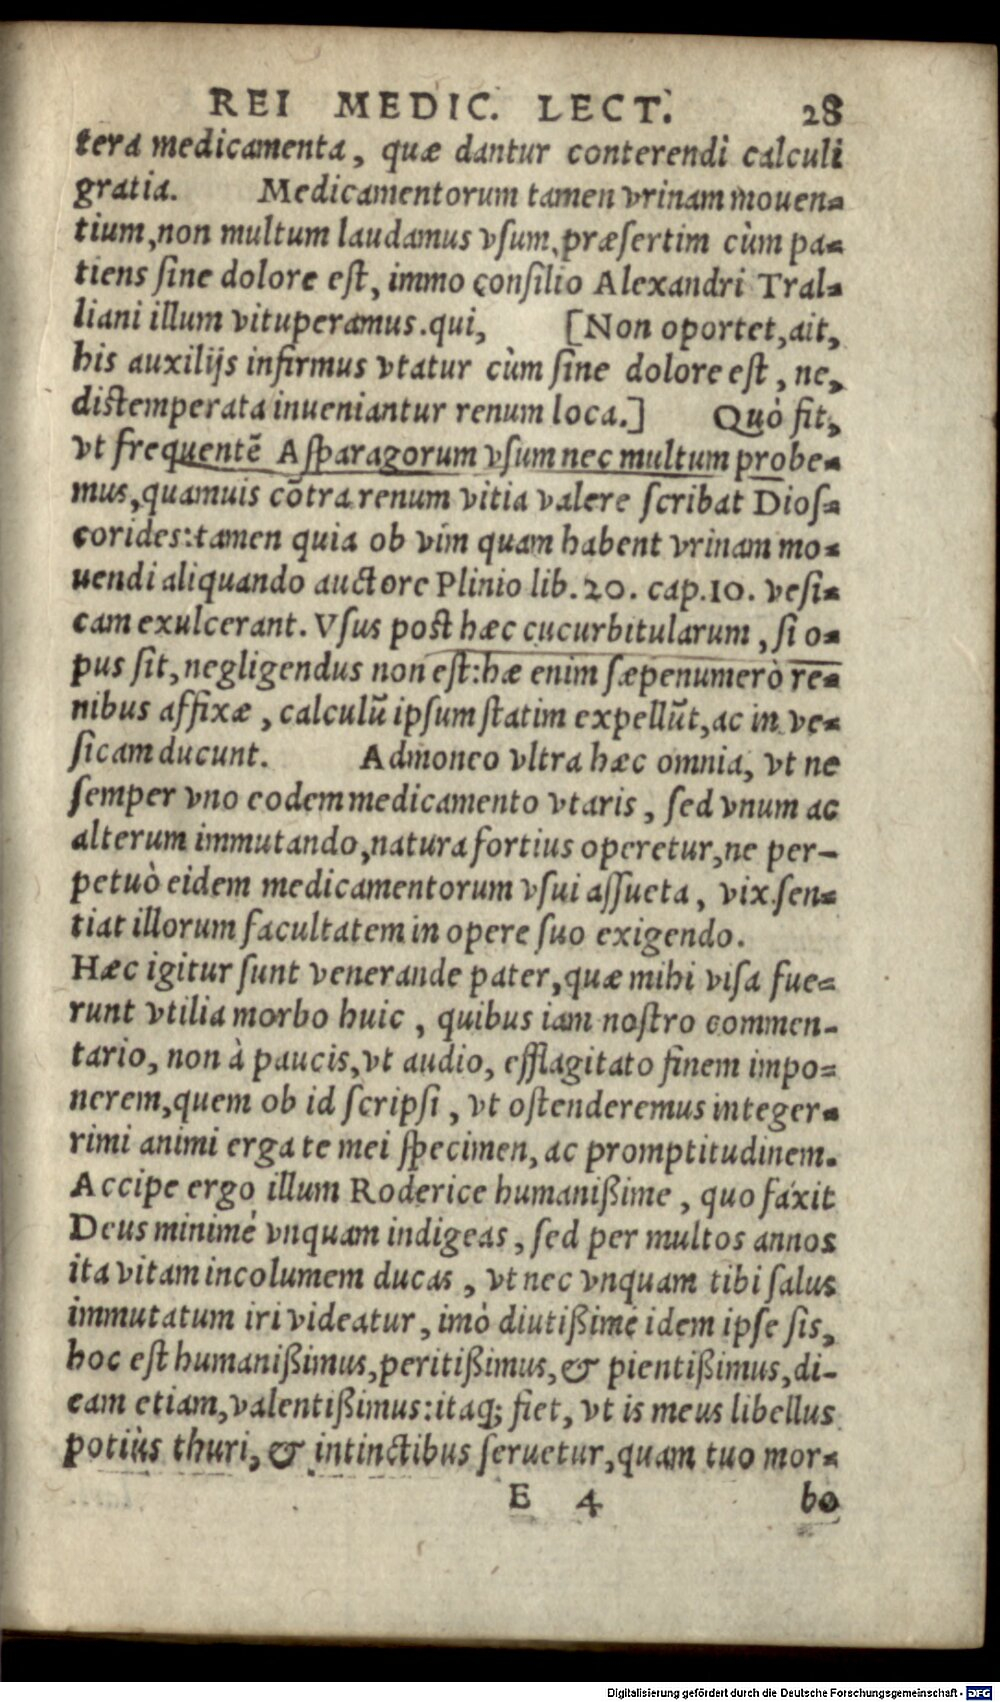 REI MEDIC. LECT. 28
tera medicamenta, quæ dantur conterendi calculi
gratia. Medicamentorum tamen vrinam mouen-
tium, non multum laudamus vſum, præſertim cùm pa-
tiens ſine dolore eſt, immo conſilio Alexandri Tral-
liani illum vituperamus. qui, [Non oportet, ait,
his auxilijs infirmus vtatur cùm ſine dolore eſt, ne,
diſtemperata inueniantur renum loca.] Quò fit,
vt frequentē Aſparagorum vſum nec multum probe-
mus, quamuis cōtra renum vitia valere ſcribat Dioſ-
corides: tamen quia ob vim quam habent vrinam mo-
uendi aliquando auctore Plinio lib. 20. cap. 10. veſi-
cam exulcerant. Vſus poſt hæc cucurbitularum, ſi o-
pus ſit, negligendus non eſt: hæ enim ſæpenumerò re-
nibus affixæ, calculū ipſum ſtatim expellūt, ac in ve-
ſicam ducunt. Admoneo vltra hæc omnia, vt ne
ſemper vno eodem medicamento vtaris, ſed vnum ac
alterum immutando, natura fortius operetur, ne per-
petuò eidem medicamentorum vſui aſſueta, vix ſen-
tiat illorum facultatem in opere ſuo exigendo.
Hæc igitur ſunt venerande pater, quæ mihi viſa fue-
runt vtilia morbo huic, quibus iam noſtro commen-
tario, non à paucis, vt audio, efflagitato finem impo-
nerem, quem ob id ſcripſi, vt oſtenderemus integer-
rimi animi erga te mei ſpecimen, ac promptitudinem.
Accipe ergo illum Roderice humanißime, quo fáxit
Deus minimè vnquam indigeas, ſed per multos annos
ita vitam incolumem ducas, vt nec vnquam tibi ſalus
immutatum iri videatur, imò diutißimè idem ipſe ſis,
hoc eſt humanißimus, peritißimus, & pientißimus, di-
cam etiam, valentißimus: itaq; fiet, vt is meus libellus
potiùs thuri, & intinctibus ſeruetur, quam tuo mor-
E 4 bo
Digitalisierung gefördert durch die Deutsche Forschungsgemeinschaft - DFG